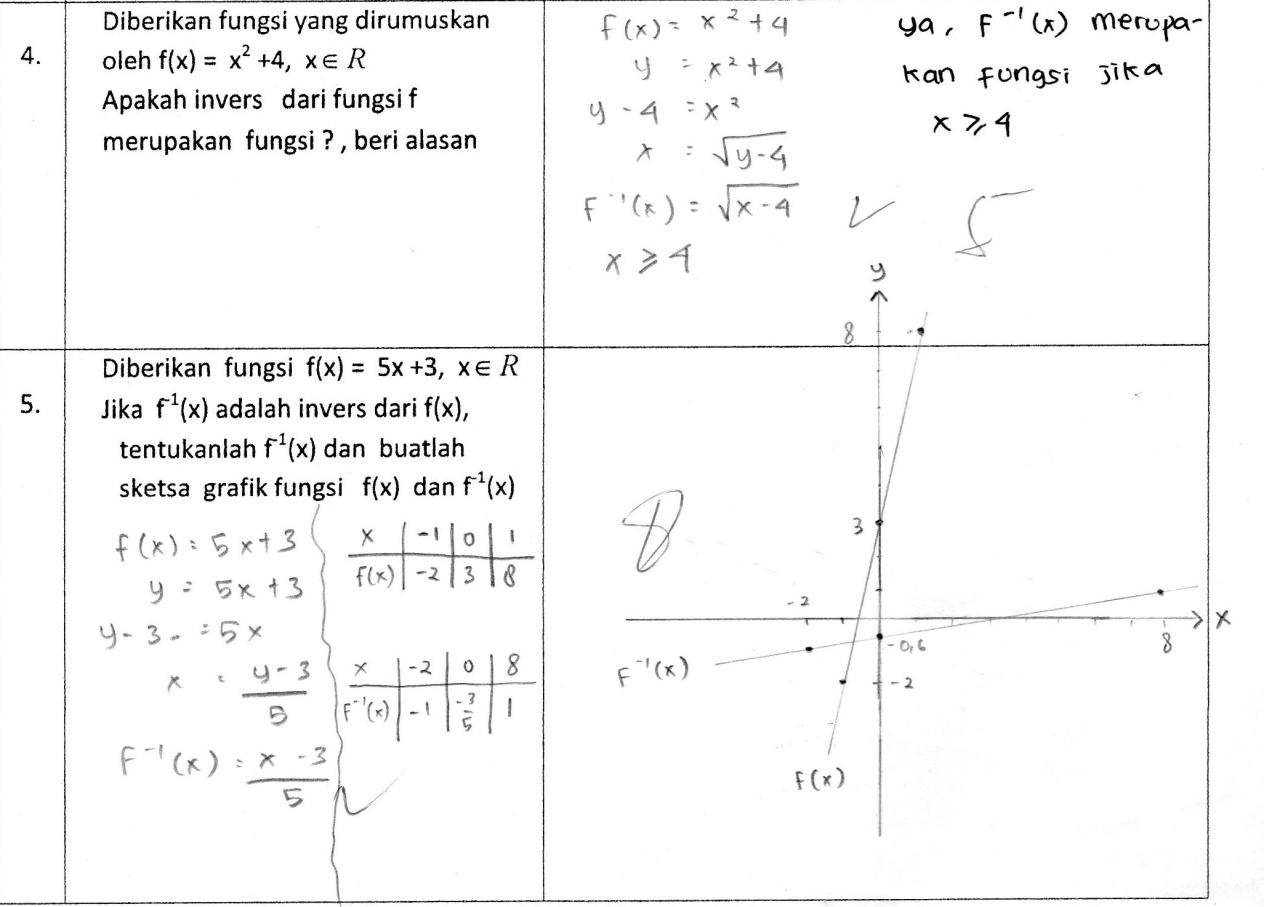 4.
Diberikan fungsi yang dirumuskan
oleh f(x) = x² +4, x ∈ R
Apakah invers dari fungsi f
merupakan fungsi ? , beri alasan
f(x) = x² + 4
y = x² + 4
y - 4 = x²
x = √(y-4)
F⁻¹(x) = √(x-4)
x ≥ 4
ya, F⁻¹(x) merupa-
kan fungsi jika
x ≥ 4
5
5.
Diberikan fungsi f(x) = 5x +3, x ∈ R
Jika f⁻¹(x) adalah invers dari f(x),
tentukanlah f⁻¹(x) dan buatlah
sketsa grafik fungsi f(x) dan f⁻¹(x)
f(x) = 5x+3
y = 5x +3
y - 3 = 5x
x = (y-3)/5
F⁻¹(x) = (x-3)/5
x | -1 | 0 | 1
f(x) | -2 | 3 | 8
x | -2 | 0 | 8
F⁻¹(x) | -1 | -3/5 | 1
8
y
8
3
-2
-0,6
8
x
-2
F⁻¹(x)
F(x)